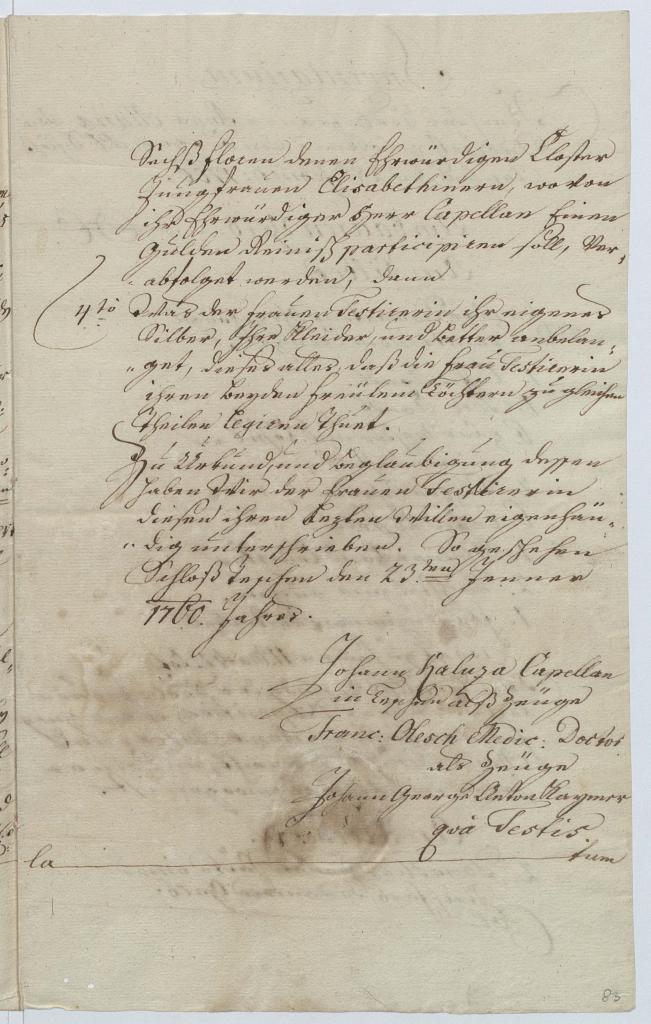 Sechß floren denen Ehrwürdigen Closter
Jungfrauen Elisabethinern, wovon
ihr Ehrwürdiger Herr Capellan Einen
Gulden Reiniß participiren soll, Ver,
abfolget werden, dann
4to Was der Frauen Testirerin ihr eigenes
Silber, Ihre Kleider, und better anbelan-
get, dieses alles, daß die Frau Testirerin
ihren beyden Freülein Töchtern zu gleichen
Theilen legiren Thuet.
Zu Urkund, und beglaubigung dessen
haben Wir der Frauen Testirerin
diesen ihren lezten Willen eigenhän-
dig unterschrieben. So geschehen
Schloß Teschen den 23ten Jenner
1760. Jahres.
Johann Kaluza Capellan
in Teschen alß Zeüge
Franc: Olesch Medic: Doctor
als Zeüge
Johann George Anton Kaymer
quà Testis
la tum
83